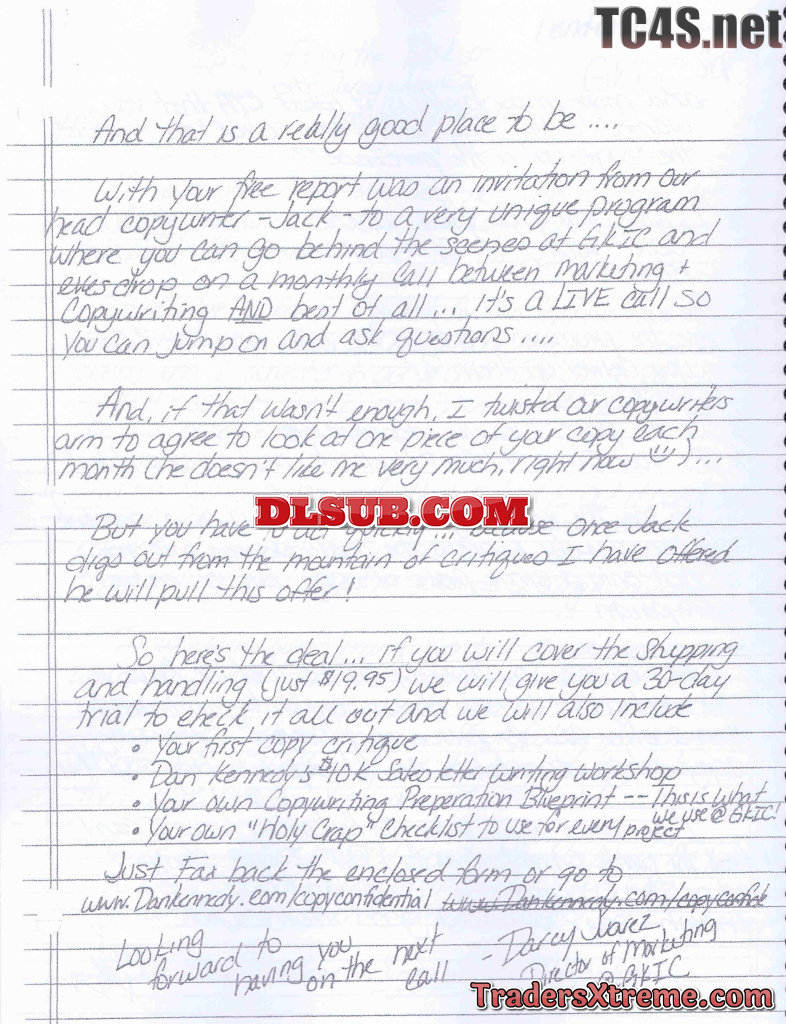 TC4S.net
And that is a really good place to be ....
With your free report was an invitation from our
head copywriter - Jack - to a very unique program
where you can go behind the scenes at GKIC and
eves drop on a monthly call between marketing +
Copywriting AND best of all ... It's a LIVE call so
you can jump on and ask questions ....
And, if that wasn't enough, I twisted our copywriters
arm to agree to look at one piece of your copy each
month (he doesn't like me very much, right now ☺) ...
DLSUB.COM
But you have to act quickly ... because once Jack
digs out from the mountain of critiques I have offered
he will pull this offer!
So, here's the deal ... if you will cover the shipping
and handling (just $19.95) we will give you a 30-day
trial to check it all out and we will also Include
• Your first copy critique
• Dan Kennedy's $10k Salesletter writing workshop
• Your own Copywriting Preperation Blueprint -- This is what
we use @ GKIC!
• Your own "Holy Crap" Checklist to use for every project
Just Fax back the enclosed form or go to
www.Dankennedy.com/copyconfidential www.Dankennedy.com/copyconfide
Looking forward to having you on the next call
- Darcy Juarez
Director of Marketing
@ GKIC
TradersXtreme.com